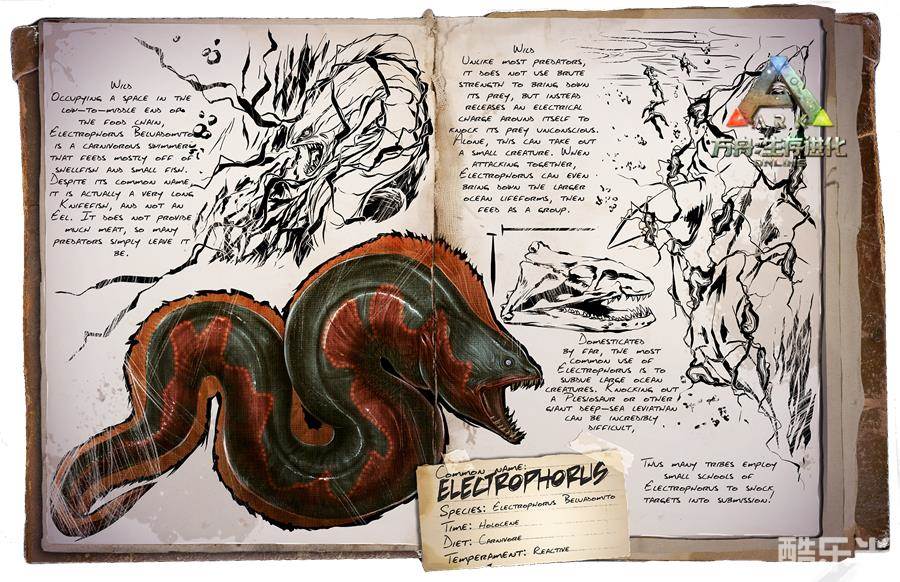 Wild
Occupying a space in the
low-to-middle end of
the food chain,
Electrophorus Beluadomito
is a carnivorous swimmer
that feeds mostly off of
shellfish and small fish.
Despite its common name,
it is actually a very long
Knifefish, and not an
Eel. It does not provide
much meat, so many
predators simply leave it
be.
Wild
Unlike most predators,
it does not use brute
strength to bring down
its prey, but instead
releases an electrical
charge around itself to
knock its prey unconscious.
Alone, this can take out
a small creature. When
attacking together,
Electrophorus can even
bring down the larger
ocean lifeforms, then
feed as a group.
ARK
方舟·生存进化
ONLINE
Domesticated
By far, the most
common use of
Electrophorus is to
subdue large ocean
creatures. Knocking out
a Plesiosaur or other
giant deep-sea leviathan
can be incredibly
difficult,
Thus many tribes employ
small schools of
Electrophorus to shock
targets into submission!
Common name:
ELECTROPHORUS
Species: Electrophorus Beluadomito
Time: Holocene
Diet: Carnivore
Temperament: Reactive
酷乐米